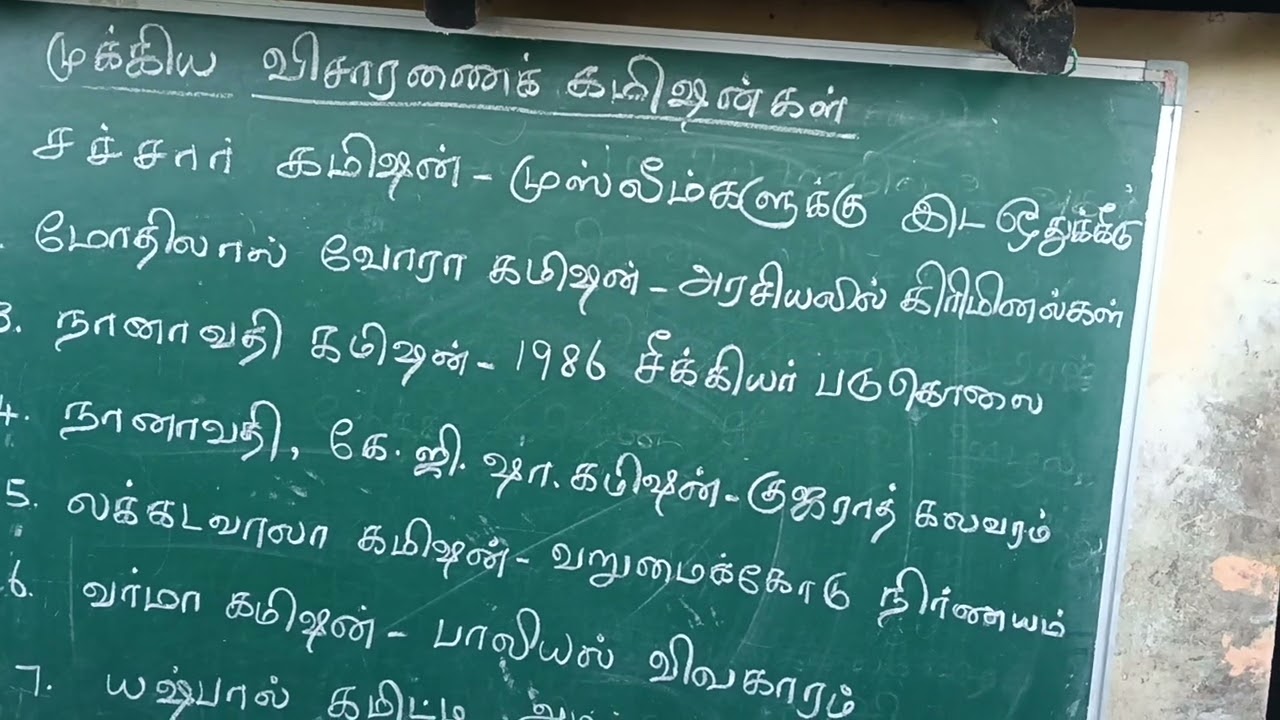 முக்கிய விசாரணைக் கமிஷன்கள்
சச்சார் கமிஷன் - முஸ்லீம்களுக்கு இட ஒதுக்கீடு
மோதிலால் வோரா கமிஷன் - அரசியலில் கிரிமினல்கள்
3. நானாவதி கமிஷன் - 1986 சீக்கியர் படுகொலை
4. நானாவதி, கே. ஜி. ஷா. கமிஷன் - குஜராத் கலவரம்
5. லக்கடவாலா கமிஷன் - வறுமைக்கோடு நிர்ணயம்
6. வர்மா கமிஷன் - பாலியல் விவகாரம்
7. யஷ்பால் கமிட்டி